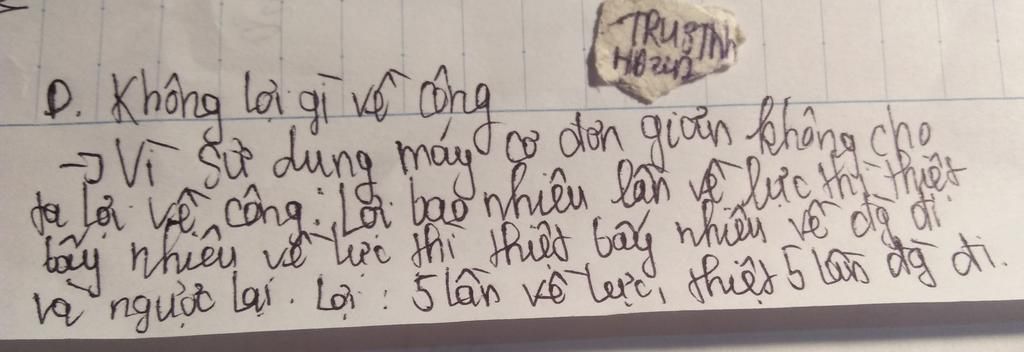 TRUSTNh
HOZU2
D. Không lợi gì về công
→ Vì sử dung máy cơ đơn giản không cho
ta lợi về công. Lợi bao nhiêu lần về lực thì thiệt
bấy nhiêu về lực thì thiệt bấy nhiêu về đg đi
và ngược lại. Lợi: 5 lần về lực, thiệt 5 lần đg đi.